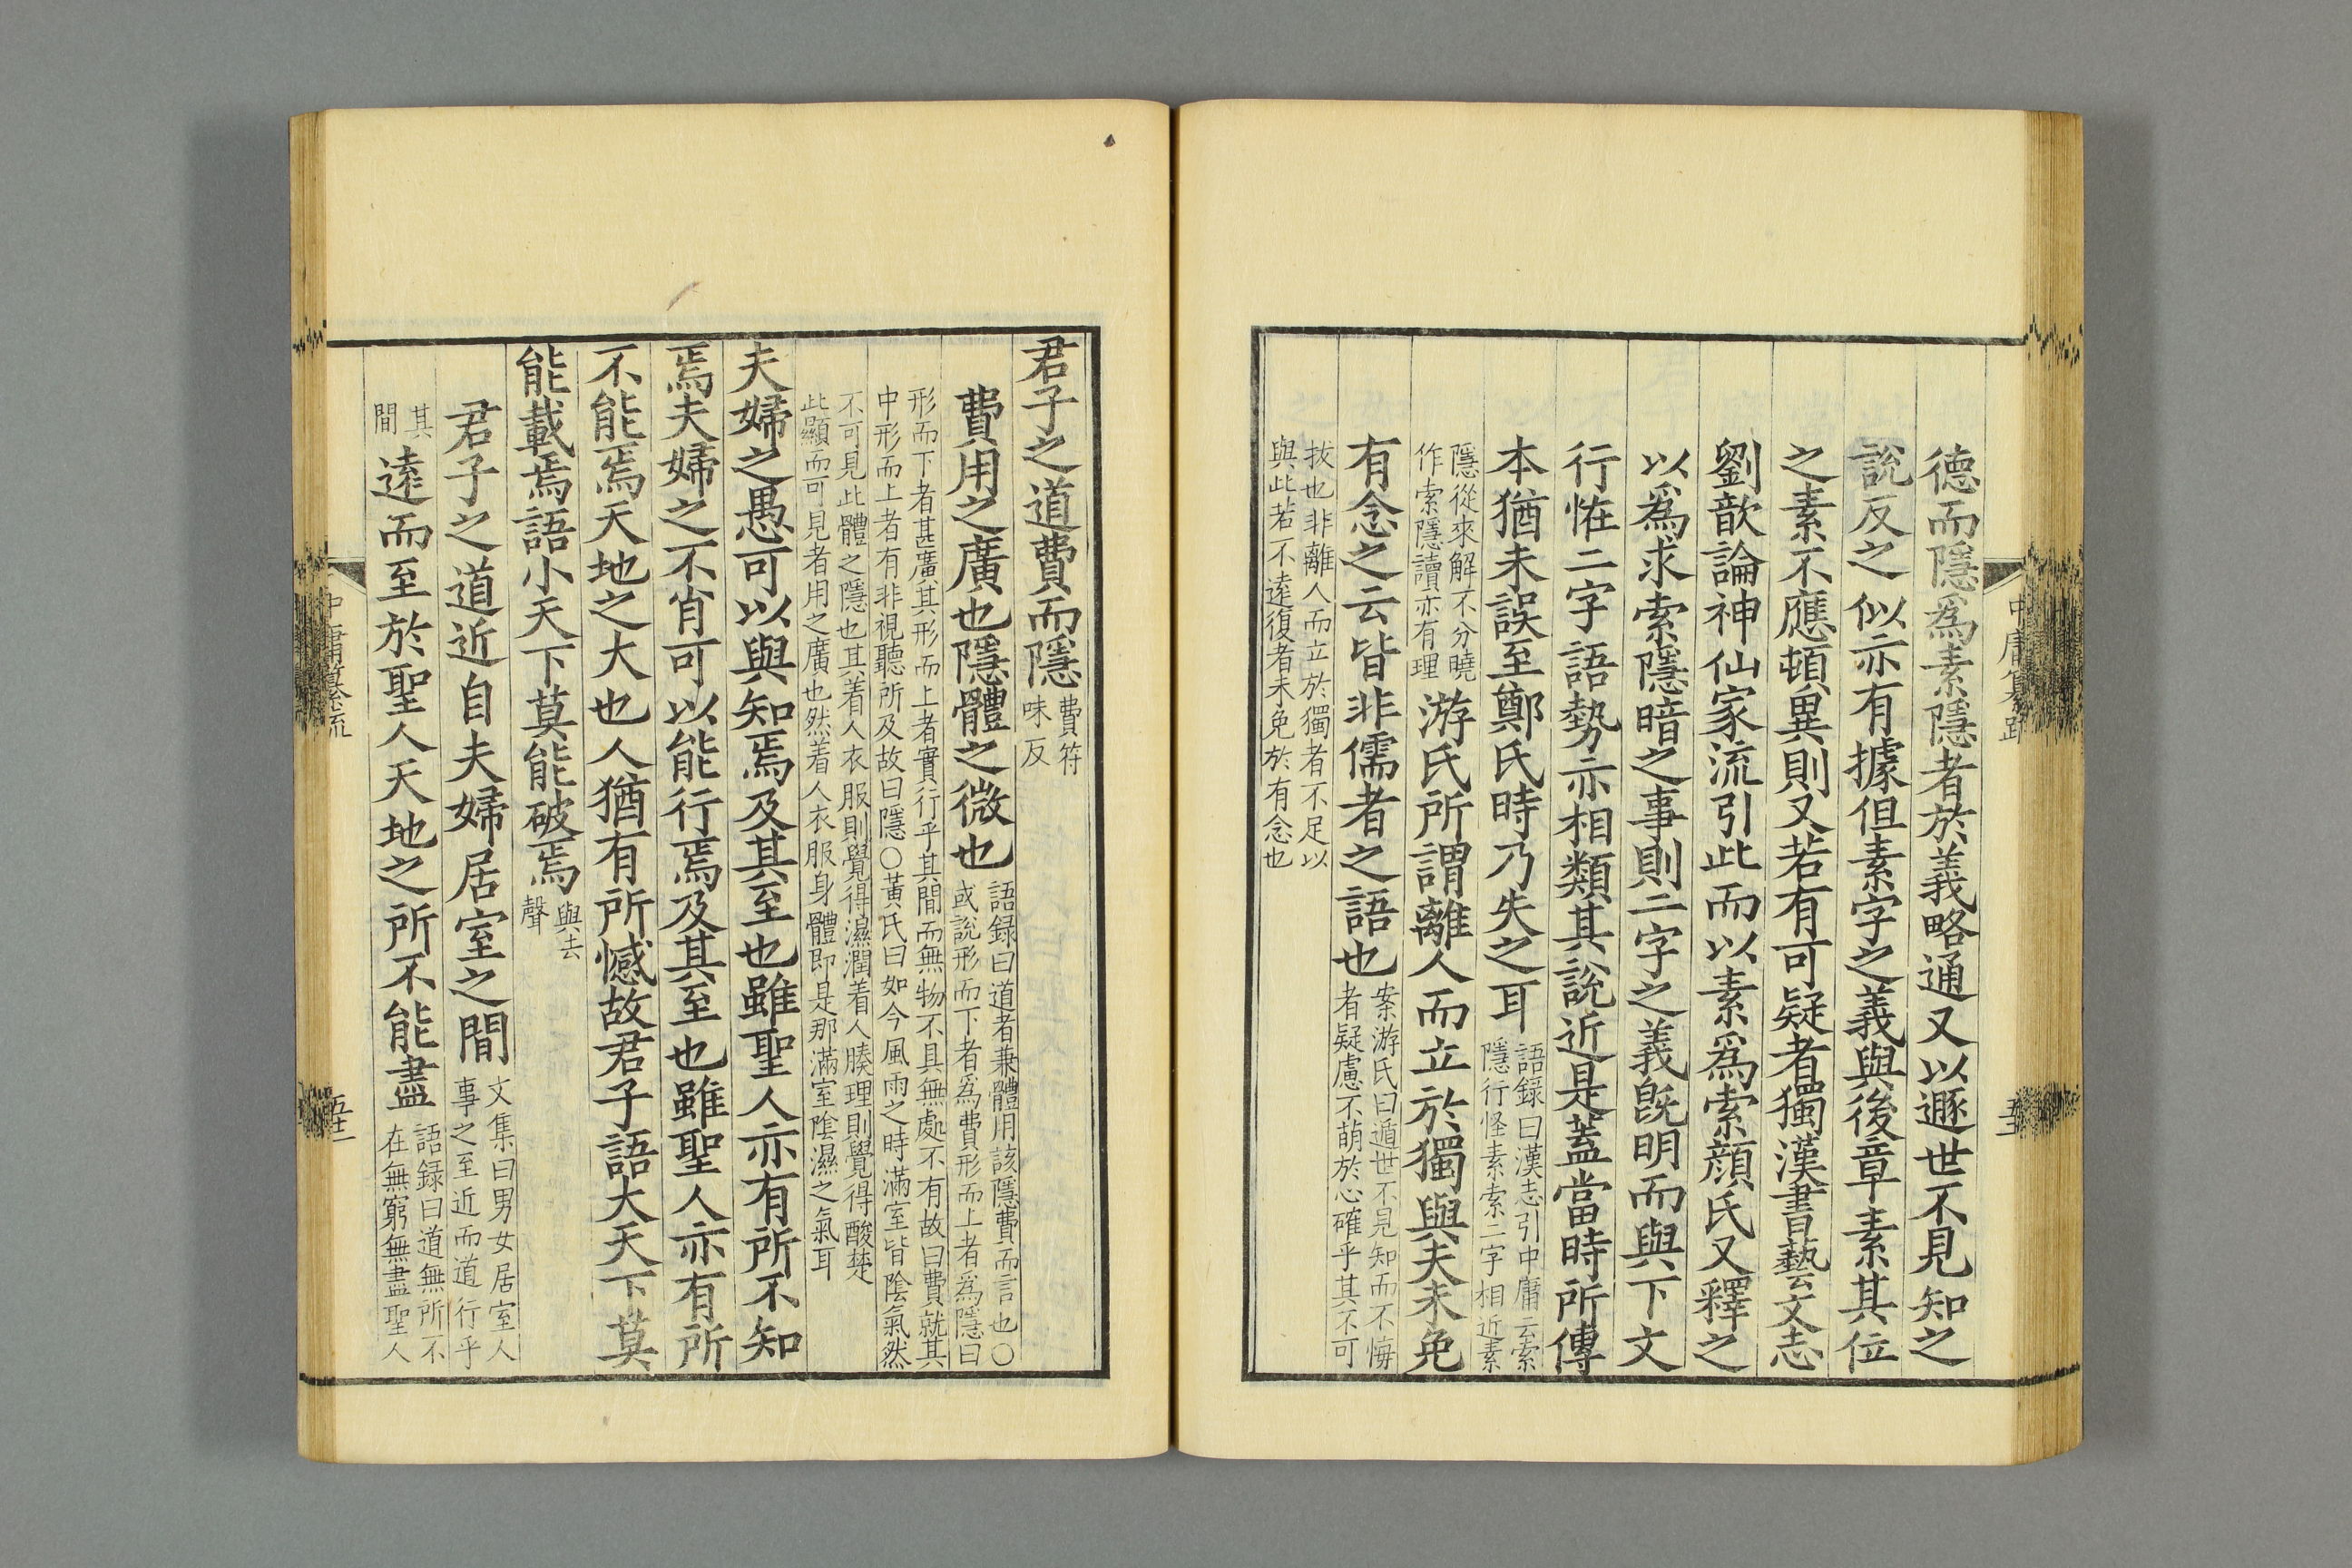 德而隱爲素隱者於義略通又以遯世不見知之
說反之似亦有據但素字之義與後章素其位
之素不應頓異則又若有可疑者獨漢書藝文志
劉歆論神仙家流引此而以素爲索顔氏又釋之
以爲求索隱暗之事則二字之義旣明而與下文
行恠二字語勢亦相類其說近是蓋當時所傳
本猶未誤至鄭氏時乃失之耳
語録曰漢志引中庸云索
隱行怪素索二字相近素
隱從來解不分曉
作索隱讀亦有理
游氏所謂離人而立於獨與夫未免
有念之云皆非儒者之語也
案游氏曰遁世不見知而不悔
者疑慮不萌於心確乎其不可
拔也非離人而立於獨者不足以
與此若不遠復者未免於有念也
中庸纂䟽
君子之道費而隱
費符
味反
費用之廣也隱體之微也
語録曰道者兼體用該隱費而言也○
或說形而下者爲費形而上者爲隱曰
形而下者甚廣其形而上者實行乎其間而無物不具無處不有故曰費就其
中形而上者有非視聽所及故曰隱○黃氏曰如今風雨之時滿室皆陰氣然
不可見此體之隱也其着人衣服則覺得濕潤着人腠理則覺得酸楚
此顯而可見者用之廣也然着人衣服身體即是那滿室陰濕之氣耳
夫婦之愚可以與知焉及其至也雖聖人亦有所不知
焉夫婦之不肖可以能行焉及其至也雖聖人亦有所
不能焉天地之大也人猶有所憾故君子語大天下莫
能載焉語小天下莫能破焉
與去
聲
君子之道近自夫婦居室之間
文集曰男女居室人
事之至近而道行乎
其
間
遠而至於聖人天地之所不能盡
語録曰道無所不
在無窮無盡聖人